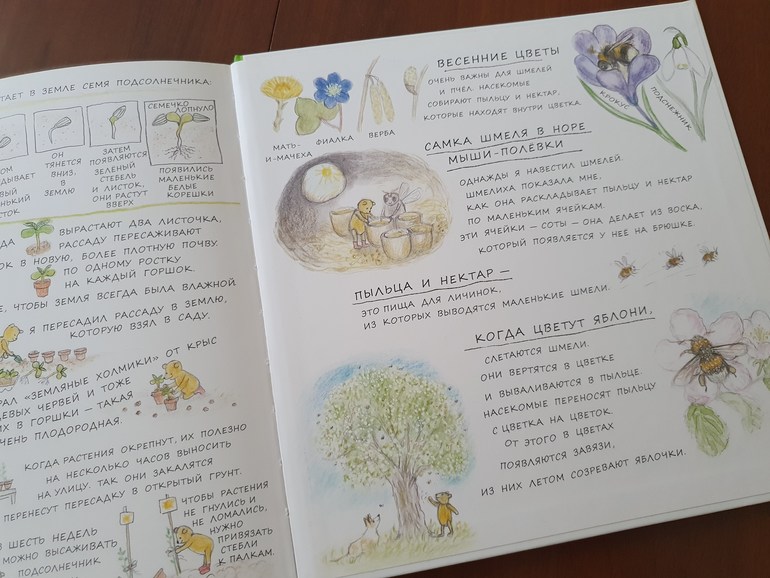 ТАЕТ В ЗЕМЛЕ СЕМЯ ПОДСОЛНЕЧНИКА:
ОН
ТЯНЕТСЯ
ВНИЗ,
В
ЗЕМЛЮ
ЗАТЕМ
ПОЯВЛЯЮТСЯ
ЗЕЛЕНЫЙ
СТЕБЕЛЬ
И ЛИСТОК,
ОНИ РАСТУТ
ВВЕРХ
СЕМЕЧКО
ЛОПНУЛО
ПОЯВИЛИСЬ
МАЛЕНЬКИЕ
БЕЛЫЕ
КОРЕШКИ
ВЫРАСТАЮТ ДВА ЛИСТОЧКА,
РАССАДУ ПЕРЕСАЖИВАЮТ
ОК В НОВУЮ, БОЛЕЕ ПЛОТНУЮ ПОЧВУ.
ПО ОДНОМУ РОСТКУ
НА КАЖДЫЙ ГОРШОК.
ЧТОБЫ ЗЕМЛЯ ВСЕГДА БЫЛА ВЛАЖНОЙ.
Я ПЕРЕСАДИЛ РАССАДУ В ЗЕМЛЮ,
КОТОРУЮ ВЗЯЛ В САДУ.
РАЛ «ЗЕМЛЯНЫЕ ХОЛМИКИ» ОТ КРЫС
ДЕВЫХ ЧЕРВЕЙ И ТОЖЕ
ИХ В ГОРШКИ – ТАКАЯ
ЧЕНЬ ПЛОДОРОДНАЯ.
КОГДА РАСТЕНИЯ ОКРЕПНУТ, ИХ ПОЛЕЗНО
НА НЕСКОЛЬКО ЧАСОВ ВЫНОСИТЬ
НА УЛИЦУ. ТАК ОНИ ЗАКАЛЯТСЯ
ПЕРЕНЕСУТ ПЕРЕСАДКУ В ОТКРЫТЫЙ ГРУНТ.
З ШЕСТЬ НЕДЕЛЬ
МОЖНО ВЫСАЖИВАТЬ
ПОДСОЛНЕЧНИК
ЧТОБЫ РАСТЕНИЯ
НЕ ГНУЛИСЬ И
НЕ ЛОМАЛИСЬ,
НУЖНО
ПРИВЯЗАТЬ
СТЕБЛИ
К ПАЛКАМ.
ВЕСЕННИЕ ЦВЕТЫ
ОЧЕНЬ ВАЖНЫ ДЛЯ ШМЕЛЕЙ
И ПЧЕЛ. НАСЕКОМЫЕ
СОБИРАЮТ ПЫЛЬЦУ И НЕКТАР,
КОТОРЫЕ НАХОДЯТ ВНУТРИ ЦВЕТКА.
МАТЬ-
И-МАЧЕХА
ФИАЛКА
ВЕРБА
КРОКУС
ПОДСНЕЖНИК
САМКА ШМЕЛЯ В НОРЕ
МЫШИ-ПОЛЕВКИ
ОДНАЖДЫ Я НАВЕСТИЛ ШМЕЛЕЙ.
ШМЕЛИХА ПОКАЗАЛА МНЕ,
КАК ОНА РАСКЛАДЫВАЕТ ПЫЛЬЦУ И НЕКТАР
ПО МАЛЕНЬКИМ ЯЧЕЙКАМ.
ЭТИ ЯЧЕЙКИ – СОТЫ – ОНА ДЕЛАЕТ ИЗ ВОСКА,
КОТОРЫЙ ПОЯВЛЯЕТСЯ У НЕЕ НА БРЮШКЕ.
ПЫЛЬЦА И НЕКТАР –
ЭТО ПИЩА ДЛЯ ЛИЧИНОК,
ИЗ КОТОРЫХ ВЫВОДЯТСЯ МАЛЕНЬКИЕ ШМЕЛИ.
КОГДА ЦВЕТУТ ЯБЛОНИ,
СЛЕТАЮТСЯ ШМЕЛИ.
ОНИ ВЕРТЯТСЯ В ЦВЕТКЕ
И ВЫВАЛИВАЮТСЯ В ПЫЛЬЦЕ.
НАСЕКОМЫЕ ПЕРЕНОСЯТ ПЫЛЬЦУ
С ЦВЕТКА НА ЦВЕТОК.
ОТ ЭТОГО В ЦВЕТАХ
ПОЯВЛЯЮТСЯ ЗАВЯЗИ,
ИЗ НИХ ЛЕТОМ СОЗРЕВАЮТ ЯБЛОЧКИ.